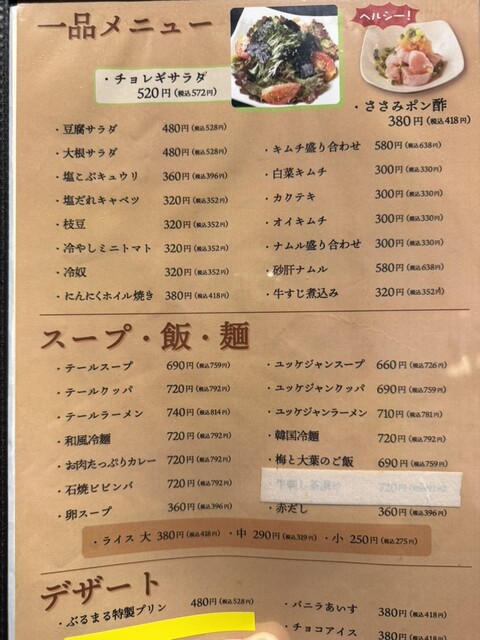 一品メニュー
ヘルシー!
・チョレギサラダ
520円(税込572円)
・ささみポン酢
380円(税込418円)
・豆腐サラダ 480円(税込528円)
・大根サラダ 480円(税込528円)
・塩こぶキュウリ 360円(税込396円)
・塩だれキャベツ 320円(税込352円)
・枝豆 320円(税込352円)
・冷やしミニトマト 320円(税込352円)
・冷奴 320円(税込352円)
・にんにくホイル焼き 380円(税込418円)
・キムチ盛り合わせ 580円(税込638円)
・白菜キムチ 300円(税込330円)
・カクテキ 300円(税込330円)
・オイキムチ 300円(税込330円)
・ナムル盛り合わせ 300円(税込330円)
・砂肝ナムル 580円(税込638円)
・牛すじ煮込み 320円(税込352円)
スープ・飯・麺
・テールスープ 690円(税込759円)
・テールクッパ 720円(税込792円)
・テールラーメン 740円(税込814円)
・和風冷麺 720円(税込792円)
・お肉たっぷりカレー 720円(税込792円)
・石焼ビビンバ 720円(税込792円)
・卵スープ 360円(税込396円)
・ユッケジャンスープ 660円(税込726円)
・ユッケジャンクッパ 690円(税込759円)
・ユッケジャンラーメン 710円(税込781円)
・韓国冷麺 720円(税込792円)
・梅と大葉のご飯 690円(税込759円)
・赤だし 360円(税込396円)
・ライス 大 380円(税込418円) ・中 290円(税込319円) ・小 250円(税込275円)
デザート
・ぶるまる特製プリン 480円(税込528円)
・バニラあいす 380円(税込418円)
・チョコアイス 380円(税込418円)